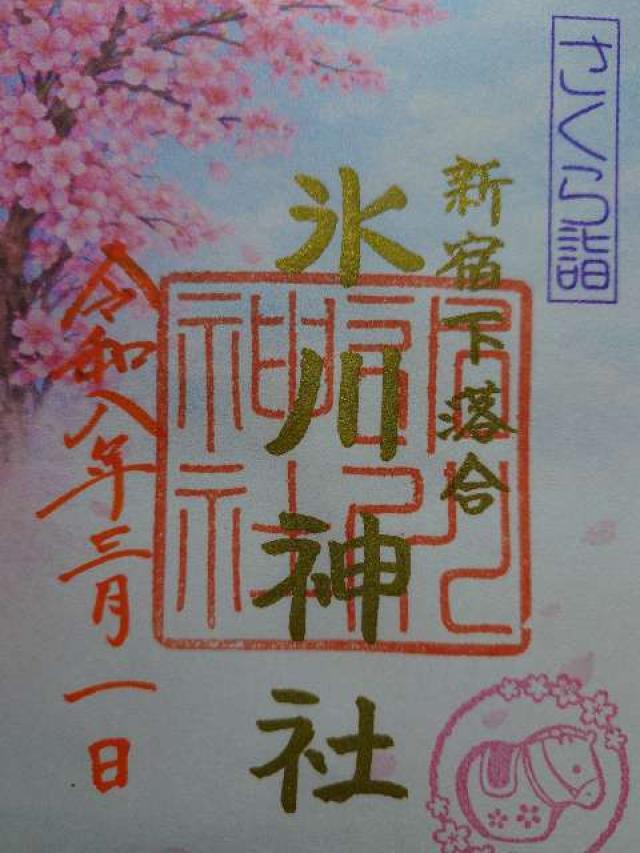 さくら詣
新宿下落合
氷川神社
令和八年三月一日